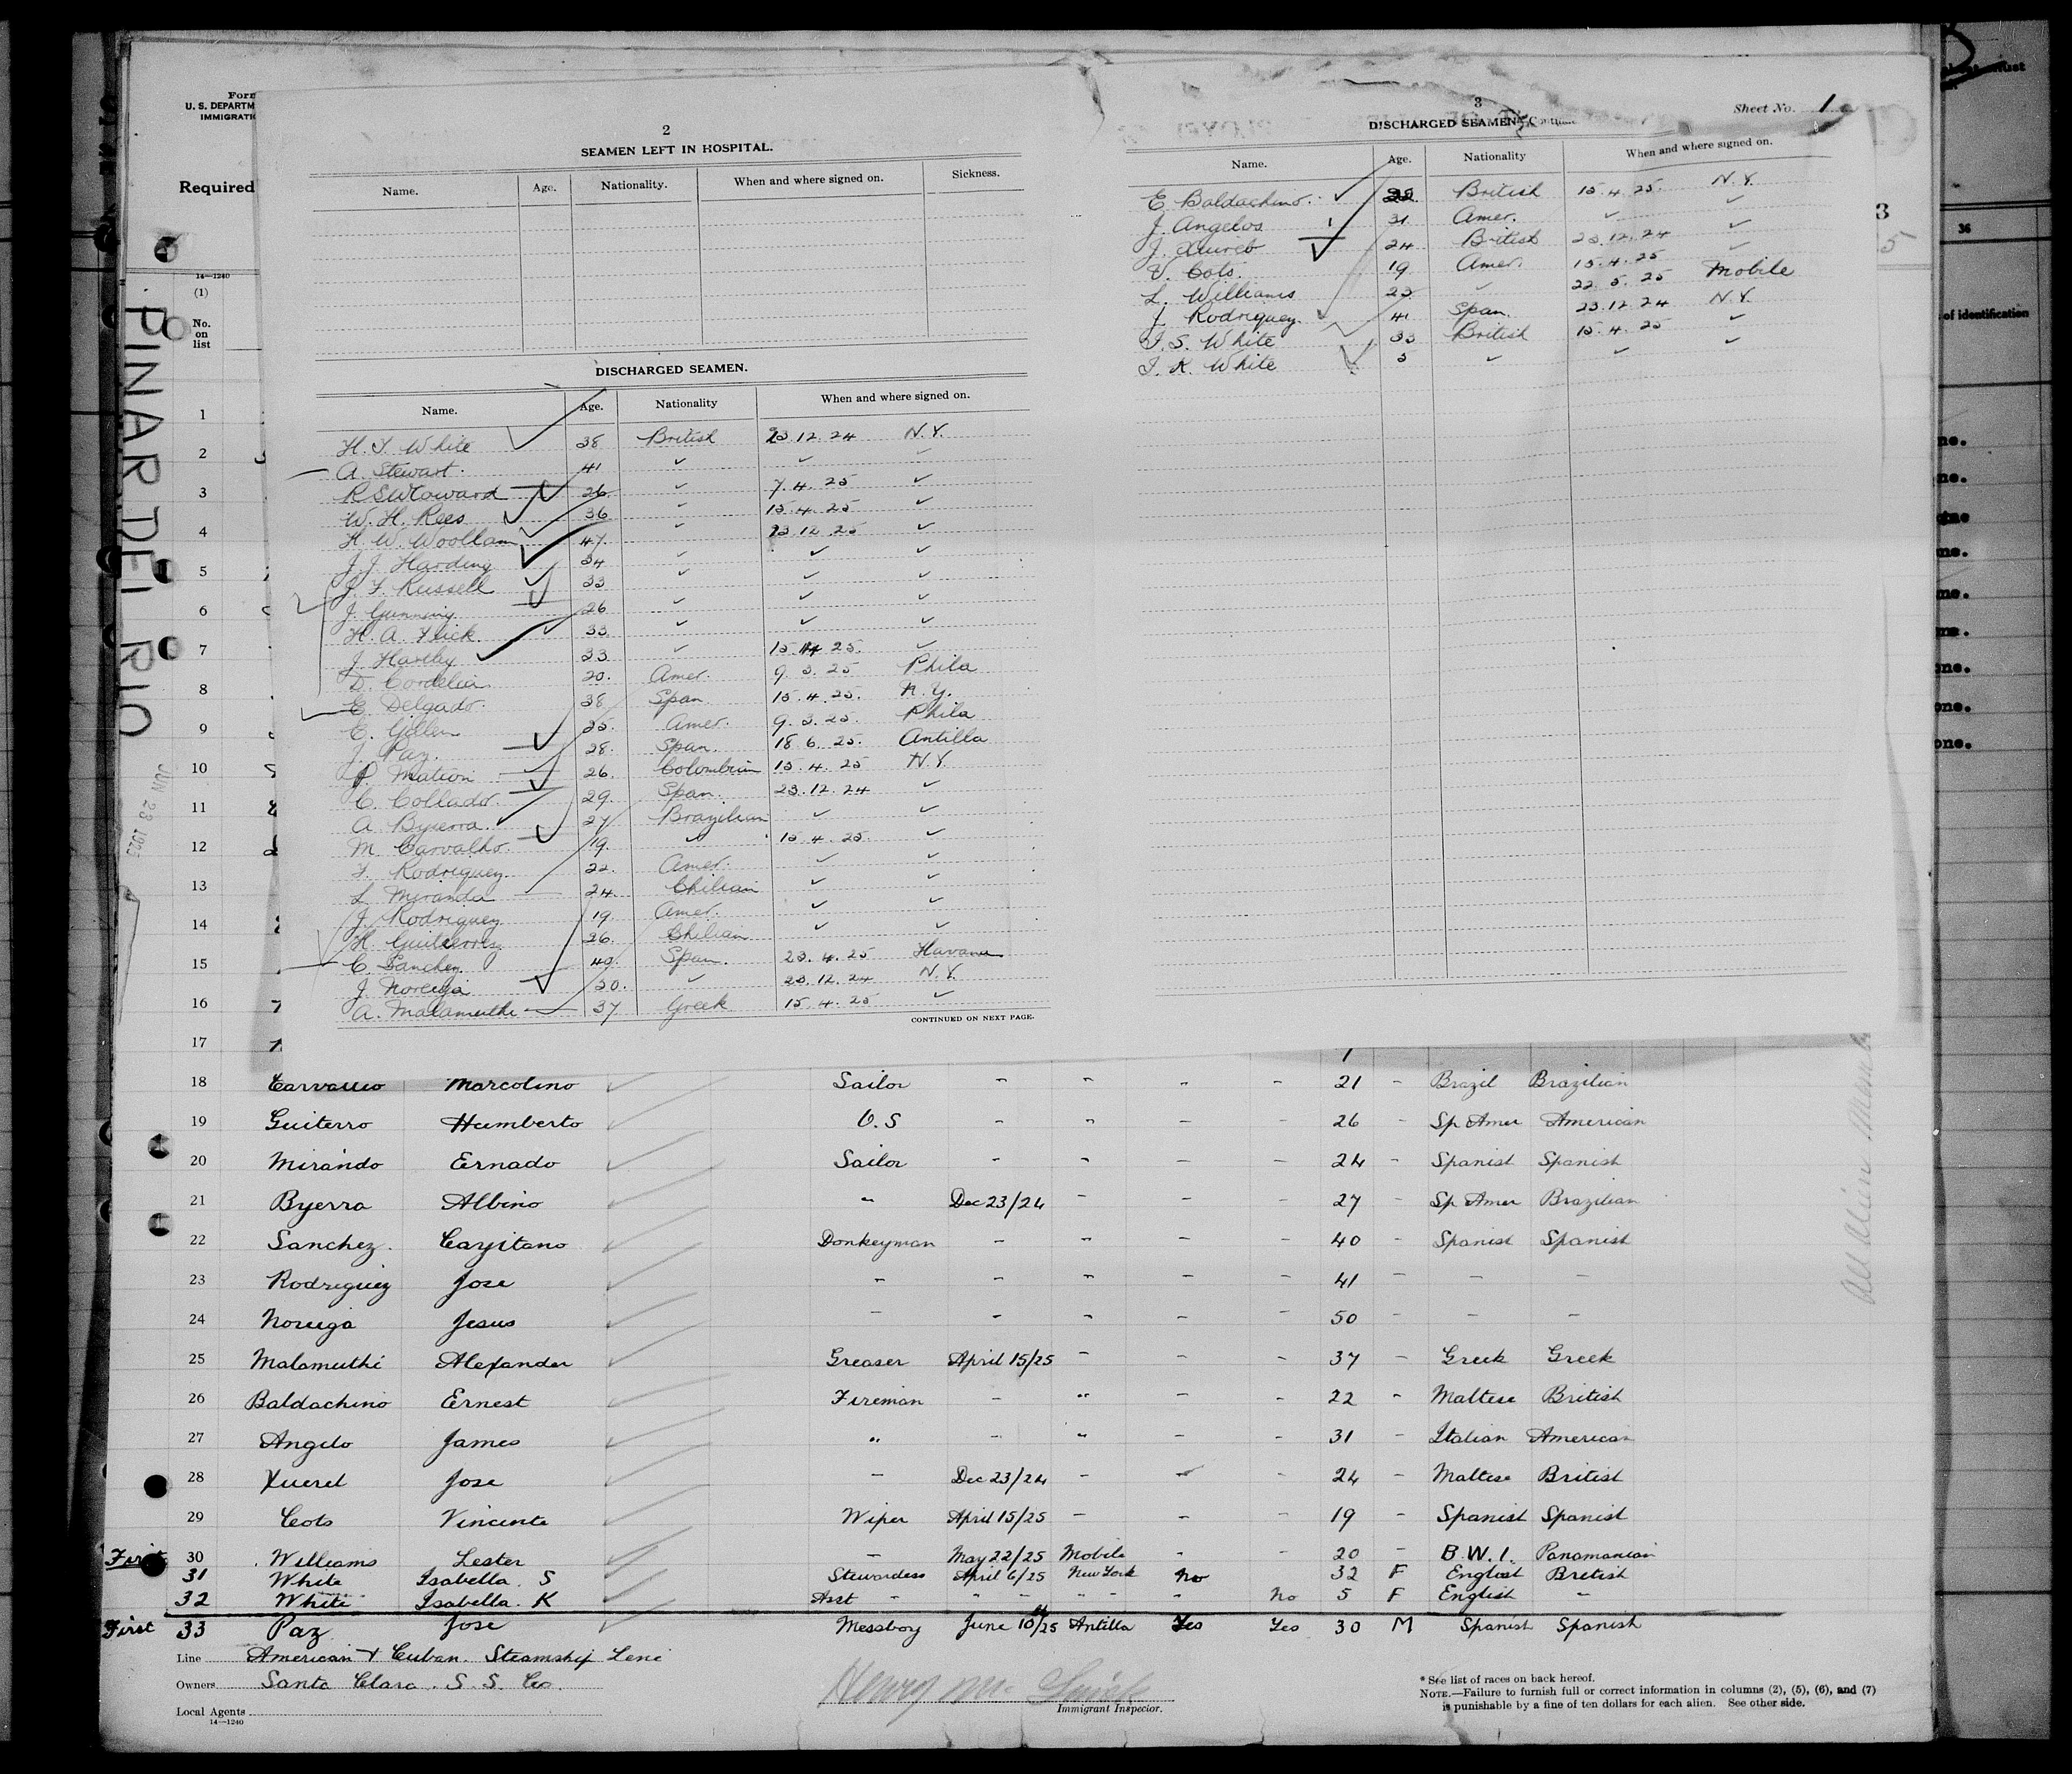 Form
U. S. DEPARTM
IMMIGRATIO
Required
14—1240
(1)
No.
on
list
PINAR DEL RIO
JUN 23 1925
2
SEAMEN LEFT IN HOSPITAL.
Name. Age. Nationality. When and where signed on. Sickness.
DISCHARGED SEAMEN.
Name. Age. Nationality When and where signed on.
H. I. White 38 British 23.12.24 N.Y.
A. Stewart. 41 ✓ ✓ ✓
R S W Coward 26. ✓ 7.4.25 ✓
W. H. Rees 36 ✓ 15.4.25 ✓
H. W. Woollam 47. ✓ 23.12.25 ✓
J. J. Harding 34 ✓ ✓ ✓
J. F. Russell 33 ✓ ✓ ✓
J. Gunning 26 ✓ ✓ ✓
H. A. Flick. 33. ✓ ✓ ✓
J. Hartley 33 ✓ 15.4.25. ✓
D. Cordelia 20. Amer. 9.3.25 Phila
E. Delgado. 38 Span 15.4.25. N.Y.
C. Gillen 25. Amer. 9.3.25. Phila
J. Paz. 28. Span. 18.6.25. Antilla
P. Mation 26. Colombian 15.4.25 N.Y.
C. Collado. 29. Span. 23.12.24 ✓
A. Byerra. 27 Brazilian ✓ ✓
M. Carvalho. 19. ✓ 15.4.25. ✓
F. Rodriguez. 22. Amer. ✓ ✓
L. Miranda 24. Chilian ✓ ✓
J. Rodriguez 19. Amer. ✓ ✓
H. Guiterrez 26. Chilian ✓ ✓
C. Sanchez. 40. Span. 23.4.25 Havana
J. Noreiga 50. ✓ 23.12.24 N.Y.
A. Malamuthe 37 Greek 15.4.25 ✓
CONTINUED ON NEXT PAGE.
3
Sheet No. 1
DISCHARGED SEAMEN—Contin
Name. Age. Nationality When and where signed on.
E. Baldachino. 22. British 15.4.25. N.Y.
J. Angelos 31 Amer. ✓ ✓
J. Xuireb 24 British 23.12.24 ✓
V. Cots. 19 Amer. 15.4.25 ✓
L. Williams 23 ✓ 22.5.25 Mobile
J. Rodriguez. 41 Span. 23.12.24 N.Y.
I. S. White 33 British 15.4.25 ✓
I. K. White 5 ✓ ✓ ✓
3
5
36
of identification
1
2
3
4
5
6
7
8
9
10
11
12
13
14
15
16
17
18 Marcolino Sailor - " - - 21 - Brazil Brazilian
19 Guiterro Humberto O.S - " - - 26 - Sp Amer American
20 Mirando Ernado Sailor - " - - 24 - Spanish Spanish
21 Byerra Albino " Dec 23/24 - - - 27 - Sp Amer Brazilian
22 Sanchez. Cayitano Donkeyman - " - - 40 - Spanish Spanish
23 Rodriguez Jose - - " - - 41 - - -
24 Noreiga Jesus - - " - - 50 - - -
25 Malamuthi Alexander Greaser April 15/25 - - - 37 - Greek Greek
26 Baldachino Ernest Fireman - " - - 22 - Maltese British
27 Angelo James " - " - - 31 - Italian American
28 Xuereb Jose - Dec 23/24 - - - 24 - Maltese British
29 Cots Vincente Wiper April 15/25 - - - 19 - Spanish Spanish
First 30 Williams Lester - May 22/25 Mobile - - 20 - B.W.I. Panamanian
31 White Isabella. S Stewardess April 6/25 New York No 32 F English British
32 White Isabella. K Asst - - - " " " No 5 F English -
First 33 Paz Jose Messboy June 18/25 Antilla Yes Yes 30 M Spanish Spanish
Line American & Cuban. Steamship Line
Owners Santa Clara. S. S. Co.
Local Agents
14—1240
Immigrant Inspector.
* See list of races on back hereof.
NOTE.—Failure to furnish full or correct information in columns (2), (5), (6), and (7)
is punishable by a fine of ten dollars for each alien. See other side.